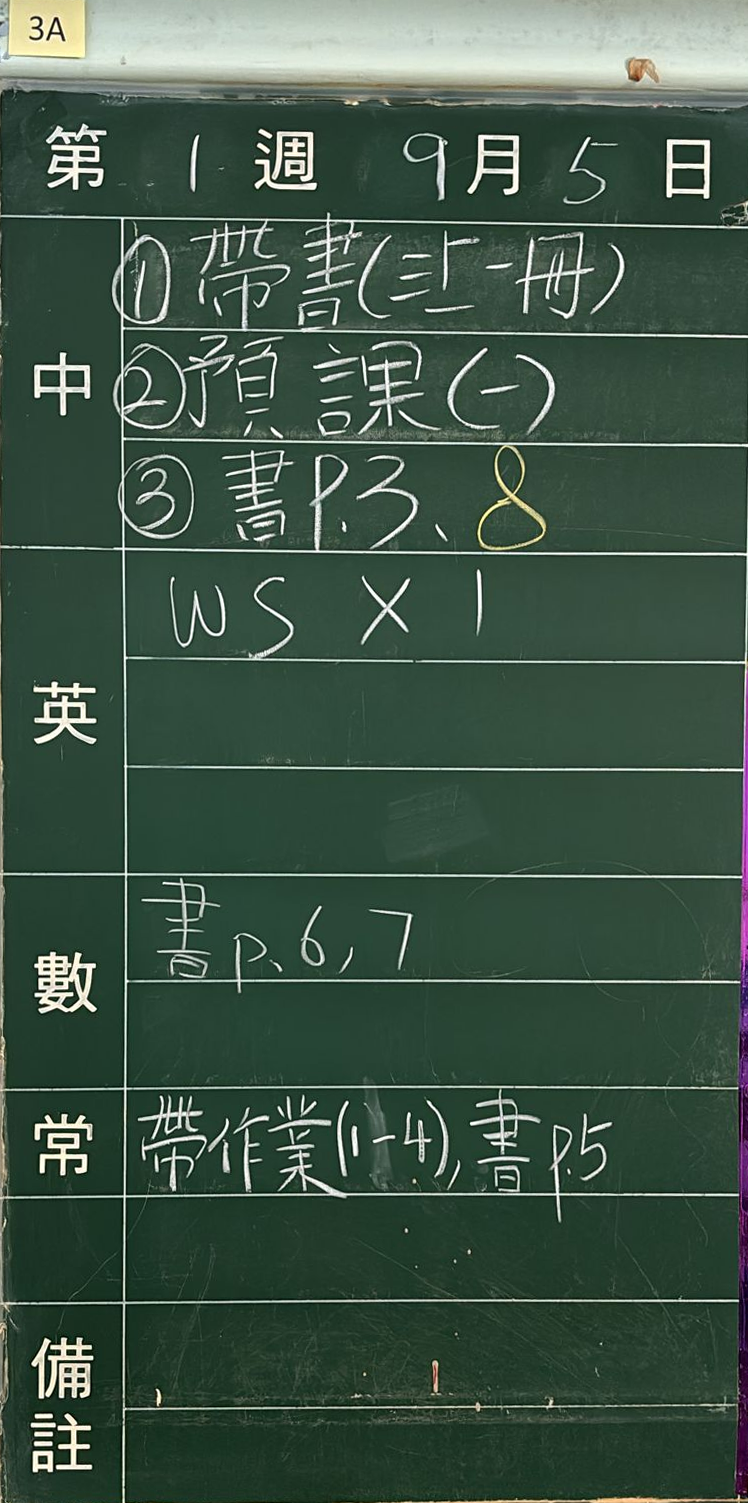 3A
第 1 週 9月5日
中
①帶書(三上一冊)
②預課(一)
③書P.3、8
英
WS X 1
數
書p.6,7
常
帶作業(1-4),書p.5
備註